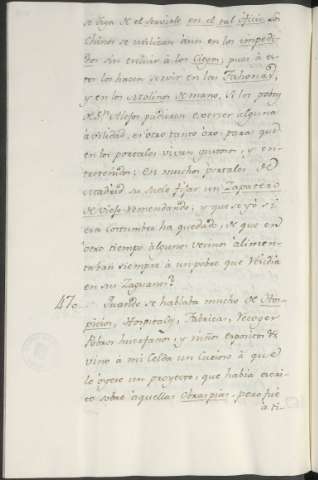 se deja de el servirle en el tal oficio. Los
Chinos se utilizan aun en los impedi-
dos sin excluir à los Ciegos; pues à es-
tos los hacen servir en las Tahonas,
y en los Molinos de mano. Si los pobres
de Sn. Alejos pudieran exercer alguna
avilidad, es otro tanto oro para que
en los portales vivan quietos, y en-
tretenidos; En muchos portales de
Madrid se suele fijar un Zapatero
de Viejo remendando; y que se yo si
era costumbre ha quedado, de que en
otro tiempo algunos vecinos alimen-
taban siempre à un pobre que residia
en su Zaguan?
47. Quando se hablaba mucho de Hos-
picios, Hospitales, Fabricas, recoger
Pobres huerfanos, y niños expositos &c
vino à mi Celda un Curioso à que
le oyese un proyecto, que habia escri-
to sobre aquellas Obras pias, pero fue
à ti-